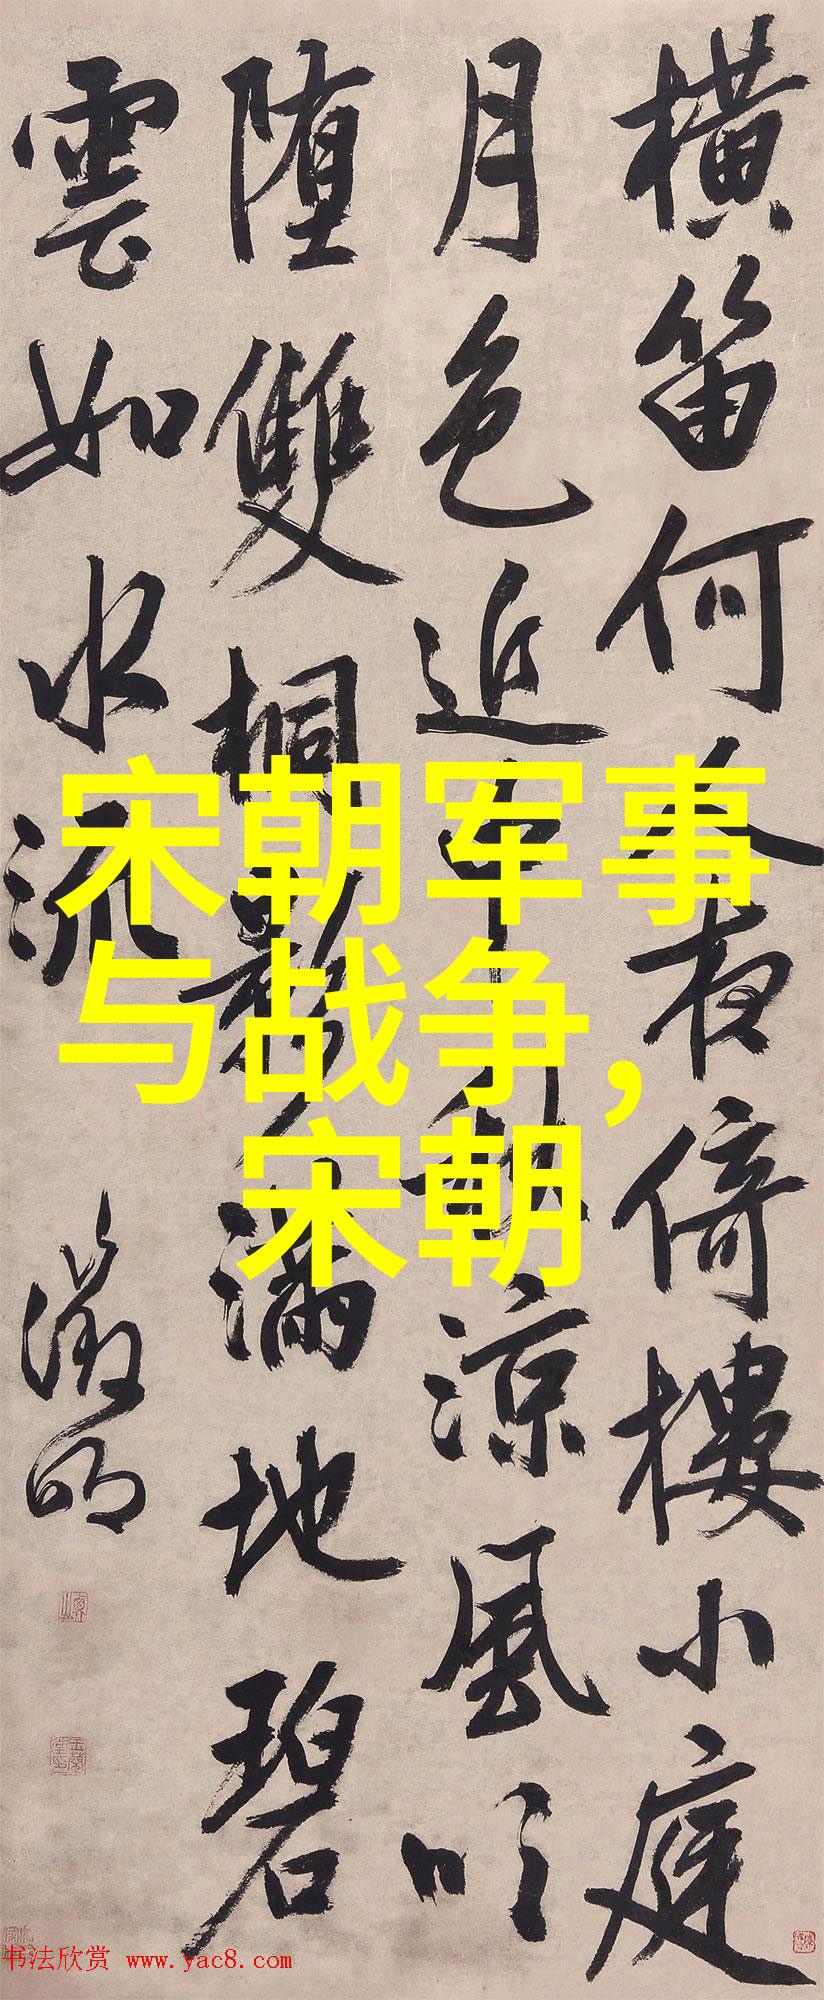 横笛何人夜倚樓小庭
月色近中秋涼風吹
堕雙桐影滿地碧
雲如水流
徵明
宋朝军事
与战争,
宋朝
书法欣赏 www.yac8.com